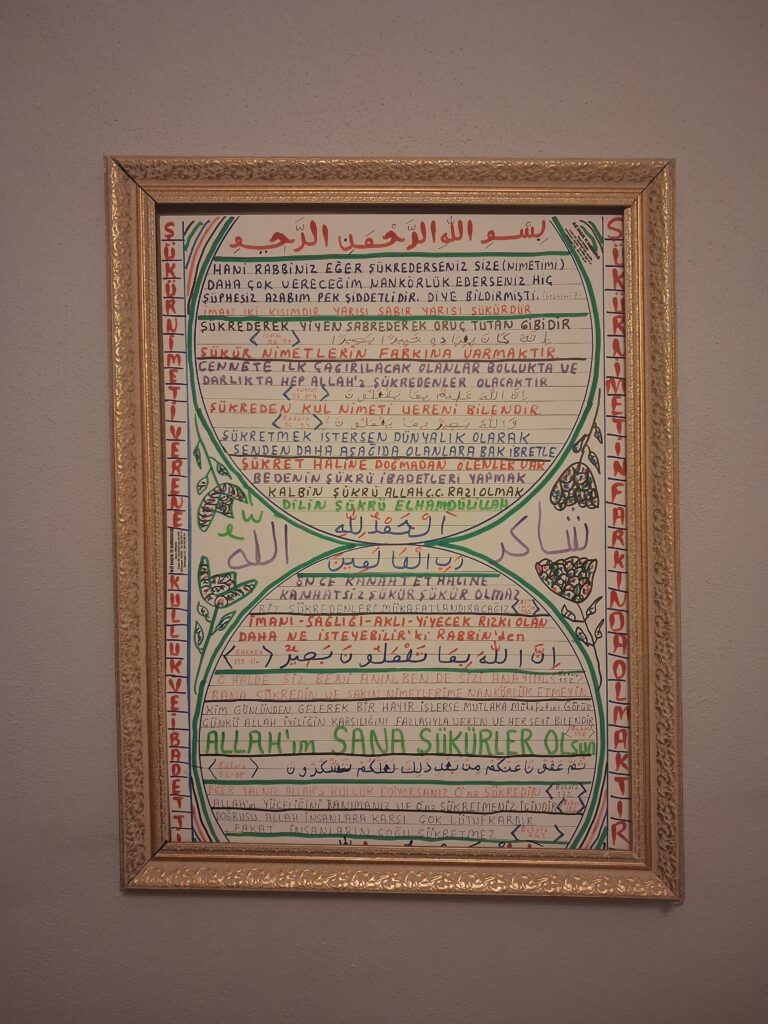 بِسْمِ اللهِ الرَّحْمَنِ الرَّحِيمِ
HANİ RABBİNİZ EĞER ŞÜKREDERSENİZ SİZE (NİMETİMİ)
DAHA ÇOK VERECEĞİM NANKÖRLÜK EDERSENİZ HİÇ
ŞÜPHESİZ AZABIM PEK ŞİDDETLİDİR. DİYE BİLDİRMİŞTİ. (İbrahim-7)
İMAN İKİ KISIMDIR YARISI SABIR YARISI ŞÜKÜRDÜR
ŞÜKREDEREK, YİYEN SABREDEREK ORUÇ TUTAN GİBİDİR
ŞÜKÜR NİMETLERİN FARKINA VARMAKTIR
CENNETE İLK ÇAĞIRILACAK OLANLAR BOLLUKTA VE
DARLIKTA HEP ALLAH'a ŞÜKREDENLER OLACAKTIR
ŞÜKREDEN KUL NİMETİ VERENİ BİLENDİR.
ŞÜKRETMEK İSTERSEN DÜNYALIK OLARAK
SENDEN DAHA AŞAĞIDA OLANLARA BAK İBRETLE
ŞÜKRET HALİNE DOĞMADAN ÖLENLER VAR
BEDENİN ŞÜKRÜ İBADETLERİ YAPMAK
KALBİN ŞÜKRÜ ALLAH C.C. RAZI OLMAK
DİLİN ŞÜKRÜ ELHAMDÜLİLLAH
الْحَمْدُ لِلَّهِ
شاكر
الله
رَبِّ الْعَالَمِينَ
ÖNCE KANAHAT ET HALİNE
KANHATSİZ ŞÜKÜR ŞÜKÜR OLMAZ
BİZ ŞÜKREDENLERİ MÜKAFATLANDIRACAĞIZ
İMANI-SAĞLIĞI-AKLI-YİYECEK RIZKI OLAN
DAHA NE İSTEYEBİLİR'ki RABBİN'den
إِنَّ اللهَ بِمَا تَعْمَلُونَ بَصِيرٌ
O HALDE SİZ BENİ ANIN, BEN DE SİZİ ANAYIM. Bakara 152
BANA ŞÜKREDİN VE SAKIN NİMETLERİME NANKÖRLÜK ETMEYİN
KİM GÖNLÜNDEN GELEREK BİR HAYIR İŞLERSE MUTLAKA Mükafatını Görür
ÇÜNKÜ ALLAH İYİLİĞİN KARŞILIĞINI FAZLASIYLA VEREN VE HER ŞEYİ BİLENDİR Bakara 158
ALLAH'ım SANA ŞÜKÜRLER OLsun
ثُمَّ عَفَوْنَا عَنْكُمْ مِنْ بَعْدِ ذَلِكَ لَعَلَّكُمْ تَشْكُرُونَ
EĞER YALNIZ ALLAH'a KULLUK EDİYORSANIZ O'na ŞÜKREDİN Bakara 172
ALLAH'ın YÜCELİĞİNİ TANIMANIZ VE O'na ŞÜKRETMENİZ İÇİNDİR
DOĞRUSU ALLAH İNSANLARA KARŞI ÇOK LÜTUFKARDIR
FAKAT İNSANLARIN ÇOĞU ŞÜKRETMEZ
ŞÜKÜR NİMETİ VERENE KULLUK VE İBADETTİ
ŞÜKÜR NİMETİN FARKINDA OLMAKTIR